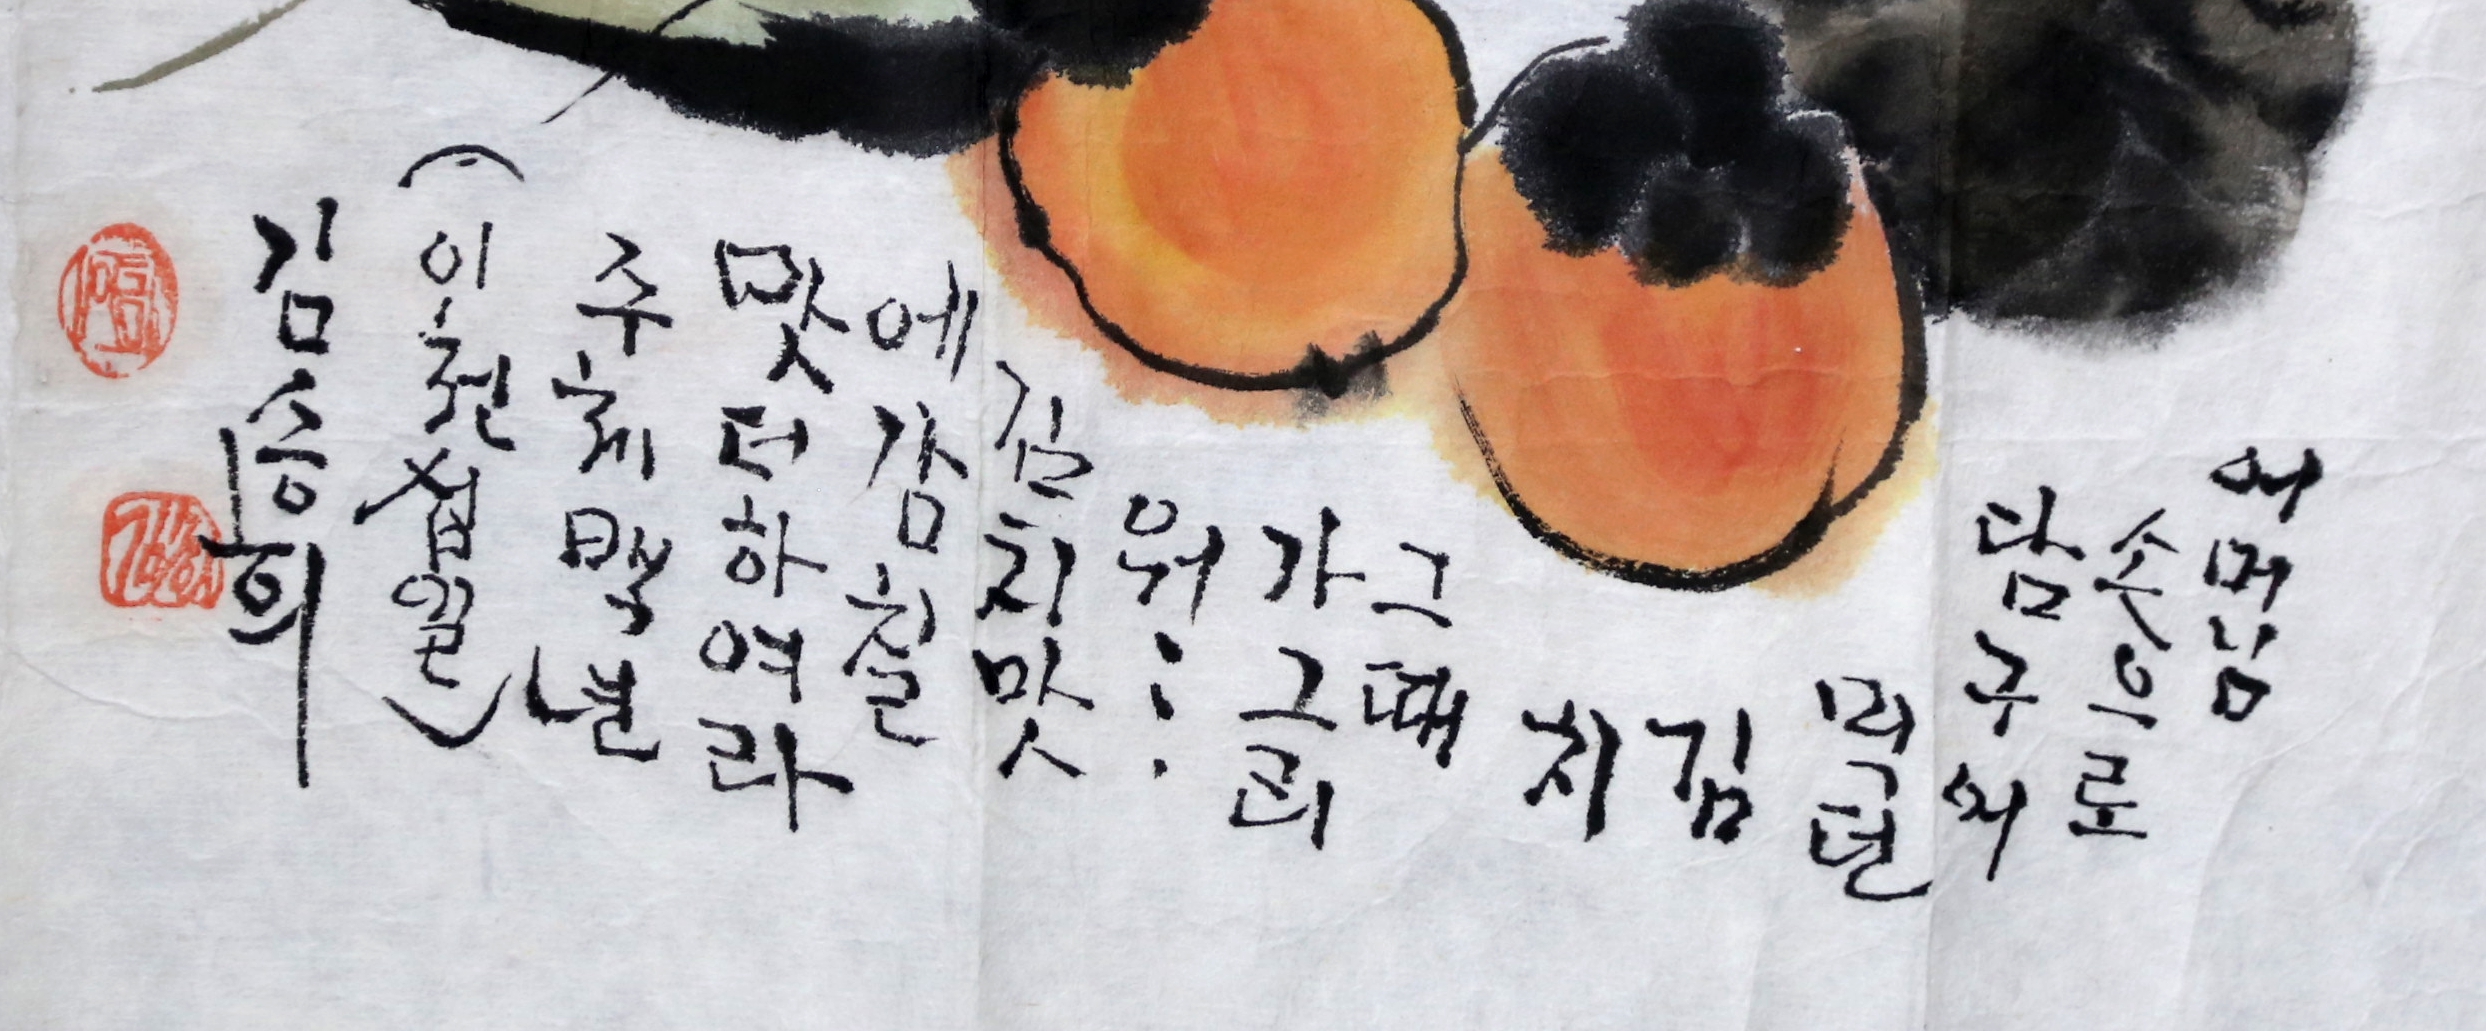 어머님
손으로
담구어
먹던
김
치
그때
가그리
워...
김치맛
에감칠
맛더하여라
주체백년
(이천십일)
김승희